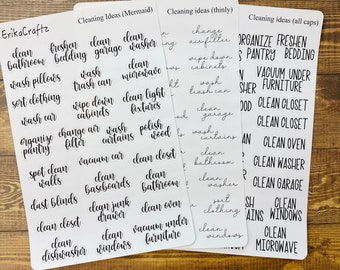 Cleaning Ideas (Mermaid)
ErikaCraftz
clean bathroom
freshen bedding
clean garage
clean washer
wash pillows
wash trash can
clean microwave
sort clothing
wipe down cabinets
clean light fixtures
wash car
organize pantry
change air filter
wash curtains
polish wood
spot clean walls
vacuum car
clean closet
clean baseboards
clean bathroom
dust blinds
clean junk drawer
clean oven
clean closet
clean dishwasher
clean windows
vacuum under furniture
Cleaning ideas (thinly)
change air filter
wipe down cabinets
wash trash can
clean garage
wash curtains
clean bathroom
sort clothing
clean windows
Cleaning ideas (all caps)
ORGANIZE PANTRY
FRESHEN BEDDING
VACUUM UNDER FURNITURE
CLEAN CLOSET
CLEAN OVEN
CLEAN WASHER
CLEAN GARAGE
CLEAN WINDOWS
CLEAN MICROWAVE